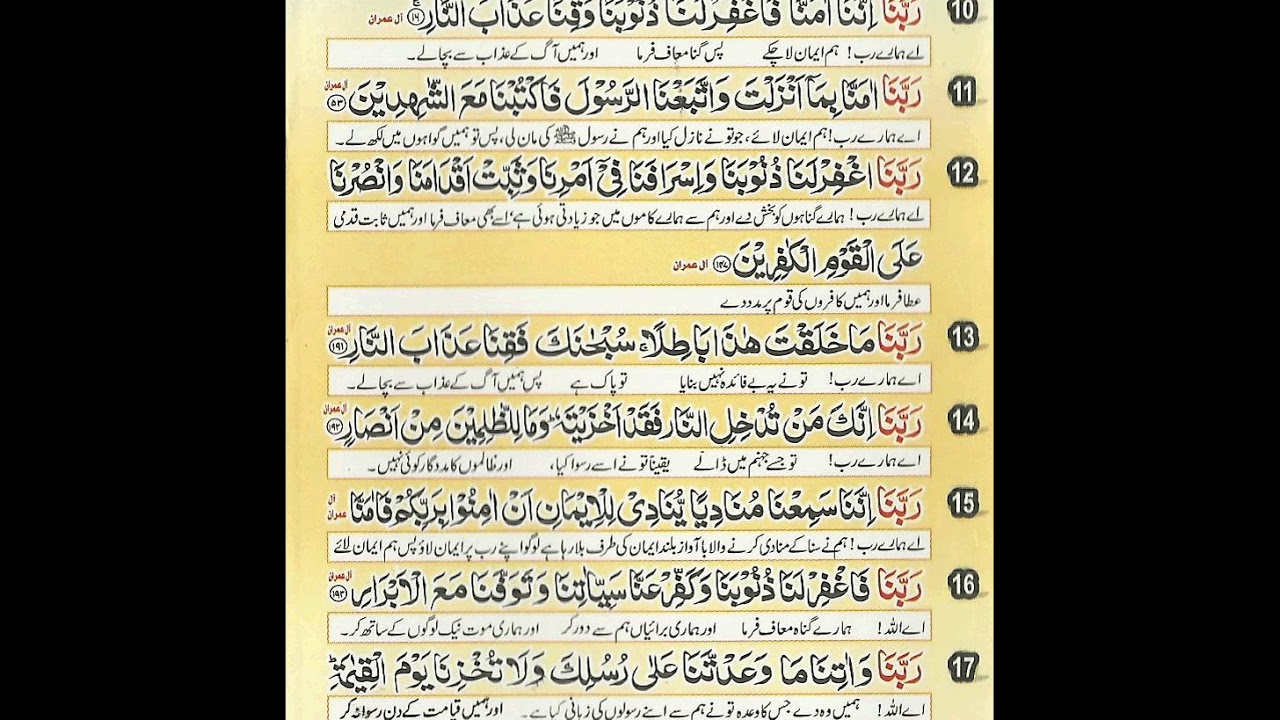 10 رَبَّنَا اِنَّنَا اٰمَنَّا فَاغْفِرْ لَنَا ذُنُوْبَنَا وَقِنَا عَذَابَ النَّارِ ﴿۱۶﴾ آل عمران
اے ہمارے رب! ہم ایمان لا چکے پس گناہ معاف فرما اور ہمیں آگ کے عذاب سے بچالے۔
11 رَبَّنَا اٰمَنَّا بِمَآ اَنْزَلْتَ وَاتَّبَعْنَا الرَّسُوْلَ فَاكْتُبْنَا مَعَ الشّٰهِدِيْنَ ﴿۵۳﴾ آل عمران
اے ہمارے رب! ہم ایمان لائے، جو تو نے نازل کیا اور ہم نے رسول ﷺ کی مان لی، پس تو ہمیں گواہوں میں لکھ لے۔
12 رَبَّنَا اغْفِرْ لَنَا ذُنُوْبَنَا وَاِسْرَافَنَا فِيْٓ اَمْرِنَا وَثَبِّتْ اَقْدَامَنَا وَانْصُرْنَا
اے ہمارے رب! ہمارے گناہوں کو بخش دے اور ہم سے ہمارے کاموں میں جو زیادتی ہوئی ہے، اسے بھی معاف فرما اور ہمیں ثابت قدمی
عَلَى الْقَوْمِ الْكٰفِرِيْنَ ﴿۱۴۷﴾ آل عمران
عطا فرما اور ہمیں کافروں کی قوم پر مدد دے
13 رَبَّنَا مَا خَلَقْتَ هٰذَا بَاطِلًا ۚ سُبْحٰنَكَ فَقِنَا عَذَابَ النَّارِ ﴿۱۹۱﴾ آل عمران
اے ہمارے رب! تو نے یہ بے فائدہ نہیں بنایا تو پاک ہے پس ہمیں آگ کے عذاب سے بچالے۔
14 رَبَّنَآ اِنَّكَ مَنْ تُدْخِلِ النَّارَ فَقَدْ اَخْزَيْتَهٗ ۖ وَمَا لِلظّٰلِمِيْنَ مِنْ اَنْصَارٍ ﴿۱۹۲﴾ آل عمران
اے ہمارے رب! تو جسے جہنم میں ڈالے یقیناً تو نے اسے رسوا کیا، اور ظالموں کا مددگار کوئی نہیں۔
15 رَبَّنَآ اِنَّنَا سَمِعْنَا مُنَادِيًا يُّنَادِيْ لِلْاِيْمَانِ اَنْ اٰمِنُوْا بِرَبِّكُمْ فَاٰمَنَّا آل عمران
اے ہمارے رب! ہم نے سنا کے منادی کرنے والا با آواز بلند ایمان کی طرف بلا رہا ہے لوگو اپنے رب پر ایمان لاؤ پس ہم ایمان لائے
16 رَبَّنَا فَاغْفِرْ لَنَا ذُنُوْبَنَا وَكَفِّرْ عَنَّا سَيِّاٰتِنَا وَتَوَفَّنَا مَعَ الْاَبْرَارِ ﴿۱۹۳﴾ آل عمران
اے اللہ! ہمارے گناہ معاف فرما اور ہماری برائیاں ہم سے دور کر اور ہماری موت نیک لوگوں کے ساتھ کر۔
17 رَبَّنَا وَاٰتِنَا مَا وَعَدْتَّنَا عَلٰى رُسُلِكَ وَلَا تُخْزِنَا يَوْمَ الْقِيٰمَةِ ؕ
اے اللہ! ہمیں وہ دے جس کا وعدہ تو نے ہم سے اپنے رسولوں کی زبانی کیا ہے۔ اور ہمیں قیامت کے دن رسوا نہ کر